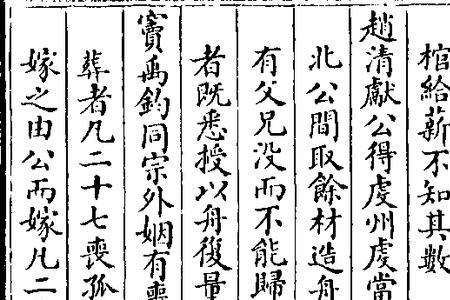 棺給薪不知其數
趙清獻公得虔州虔當
北公間取餘材造舟
有父兄没而不能歸
者既悉授以舟復量
竇禹鈞同宗外姻有喪
葬者凡二十七喪孤
嫁之由公而嫁凡二